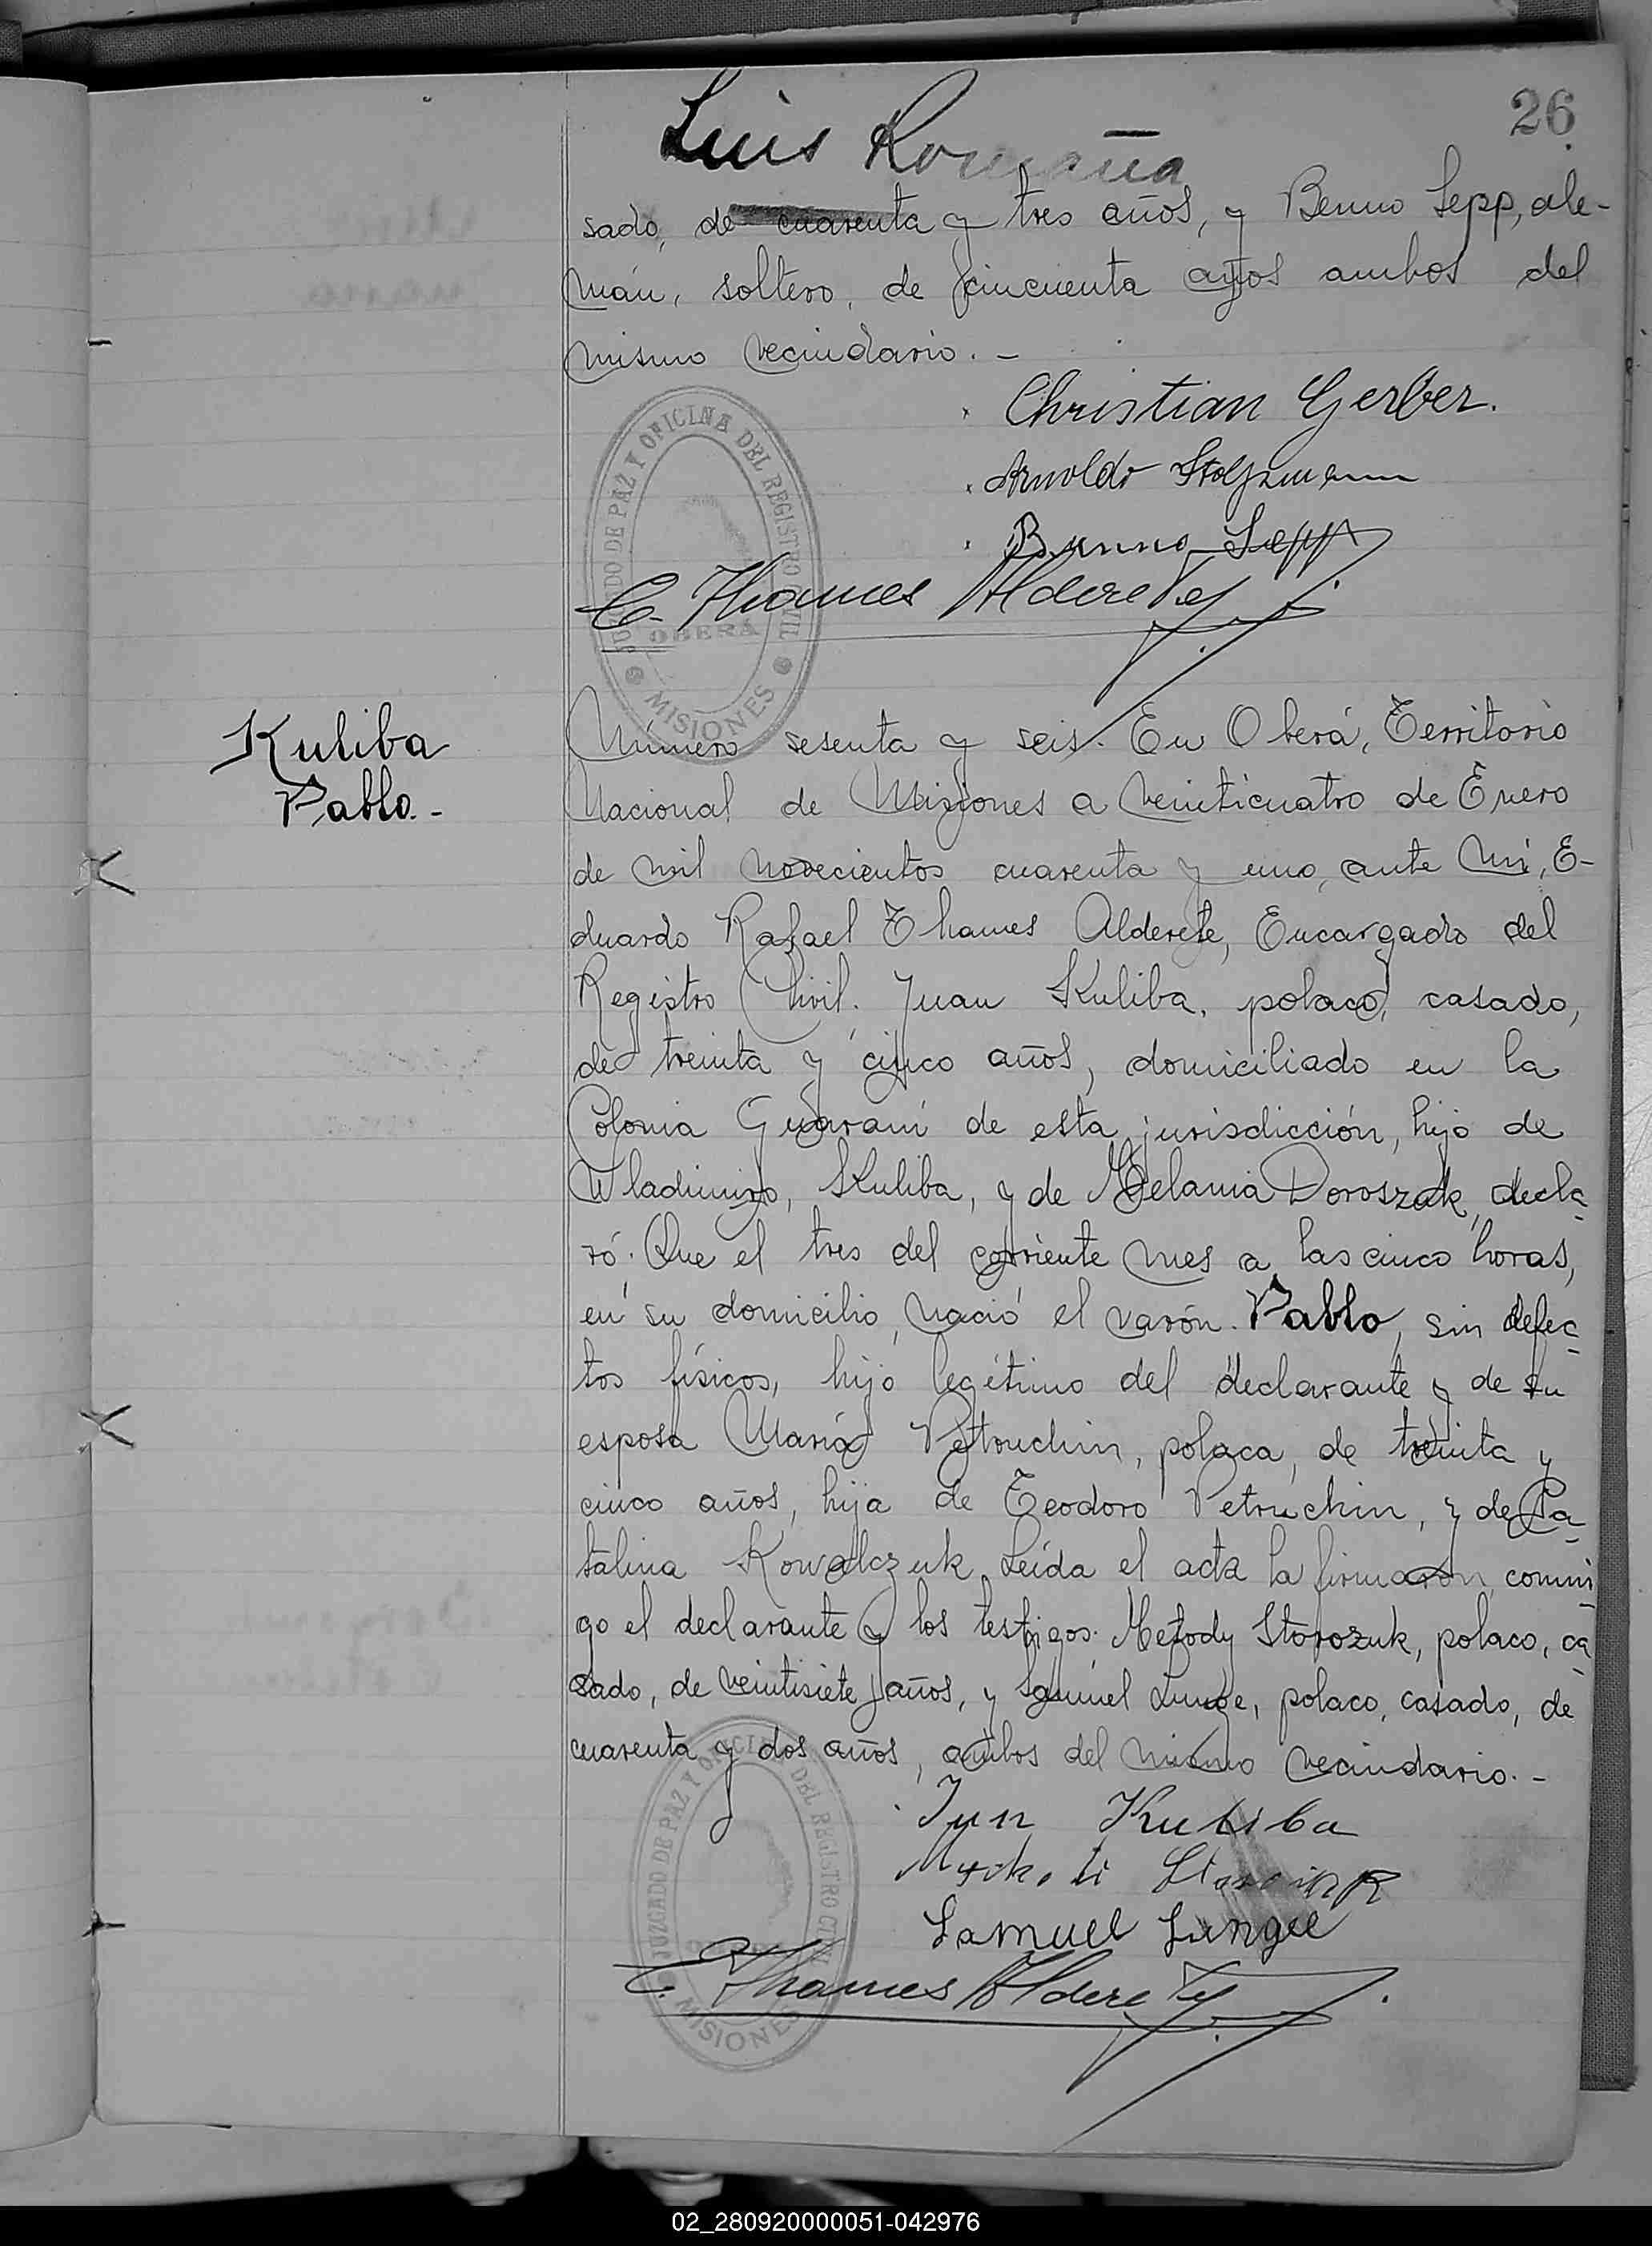 26
Luis Romaña
sado, de cuarenta y tres años, y Benno Sepp, ale-
mán, soltero, de cincuenta años ambos del
mismo vecindario. -
Christian Gerber.
Arnoldo Stolzmann
Benno Sepp
E. Thames Alderete
JUZGADO DE PAZ Y OFICINA DEL REGISTRO CIVIL
OBERÁ
MISIONES
Kuliba
Pablo. -
Número sesenta y seis. En Oberá, Territorio
Nacional de Misiones a veinticuatro de Enero
de mil novecientos cuarenta y uno, ante mí, E-
duardo Rafael Thames Alderete, Encargado del
Registro Civil. Juan Kuliba, polaco, casado,
de treinta y cinco años, domiciliado en la
Colonia Guaraní de esta jurisdicción, hijo de
Wladimiro, Kuliba, y de Melania Doroszuk, decla-
ró: Que el tres del corriente mes a las cinco horas,
en su domicilio, nació el varón. Pablo, sin defec-
tos físicos, hijo legítimo del declarante y de su
esposa María Petruchin, polaca, de treinta y
cinco años, hija de Teodoro Petruchin, y de Ca-
talina Kowalczuk. Leída el acta la firmaron conmi-
go el declarante y los testigos: Metody Storozuk, polaco, ca-
sado, de veintisiete años, y Samuel Lunge, polaco, casado, de
cuarenta y dos años, ambos del mismo vecindario. -
Kuliba
Samuel Lunge
E. Thames Alderete
JUZGADO DE PAZ Y OFICINA DEL REGISTRO CIVIL
MISIONES
02_280920000051-042976